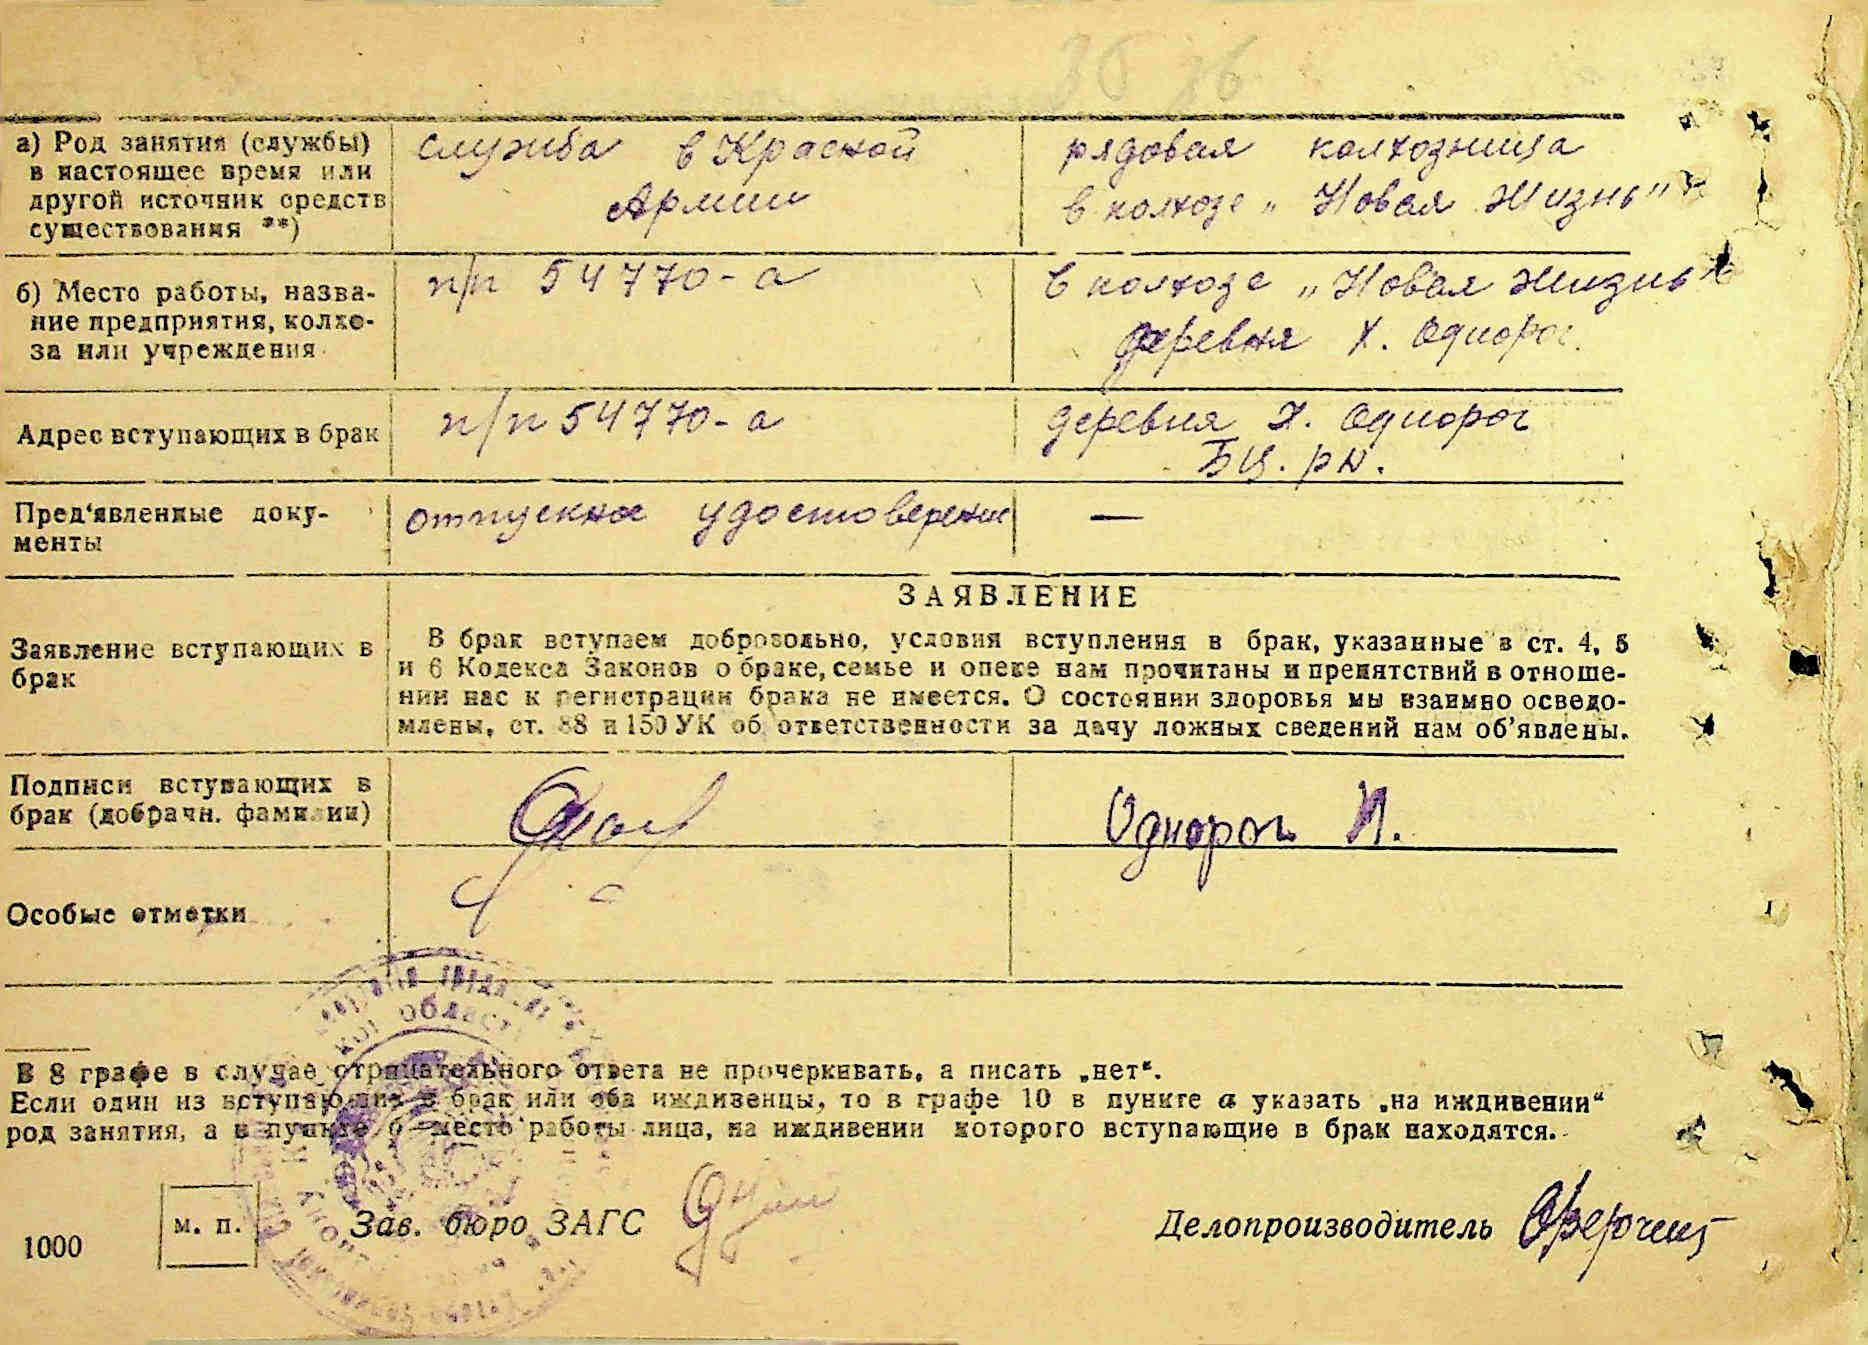 36 36
а) Род занятия (службы)
в настоящее время или
другой источник средств
существования **)
служба в Красной
Армии
рядовая колхозница
в колхозе „Новая Жизнь"
б) Место работы, назва-
ние предприятия, колхо-
за или учреждения
п/п 54770-а
в колхозе „Новая Жизнь"
деревня Х. Однорог.
Адрес вступающих в брак
п/п 54770-а
деревня Х. Однорог
БЦ. рн.
Пред'явленные доку-
менты
отпускное удостоверение
—
Заявление вступающих в
брак
ЗАЯВЛЕНИЕ
В брак вступаем добровольно, условия вступления в брак, указанные в ст. 4, 5
и 6 Кодекса Законов о браке, семье и опеке нам прочитаны и препятствий в отноше-
нии нас к регистрации брака не имеется. О состоянии здоровья мы взаимно осведо-
млены, ст. 88 и 150 УК об ответственности за дачу ложных сведений нам об'явлены.
Подписи вступающих в
брак (добрачн. фамилии)
Однорог И.
Особые отметки
области
В 8 графе в случае отрицательного ответа не прочеркивать, а писать „нет".
Если один из вступающих в брак или оба иждивенцы, то в графе 10 в пункте а указать „на иждивении"
род занятия, а в пункте б место работы лица, на иждивении которого вступающие в брак находятся.
1000
м. п.
Зав. бюро ЗАГС
Делопроизводитель